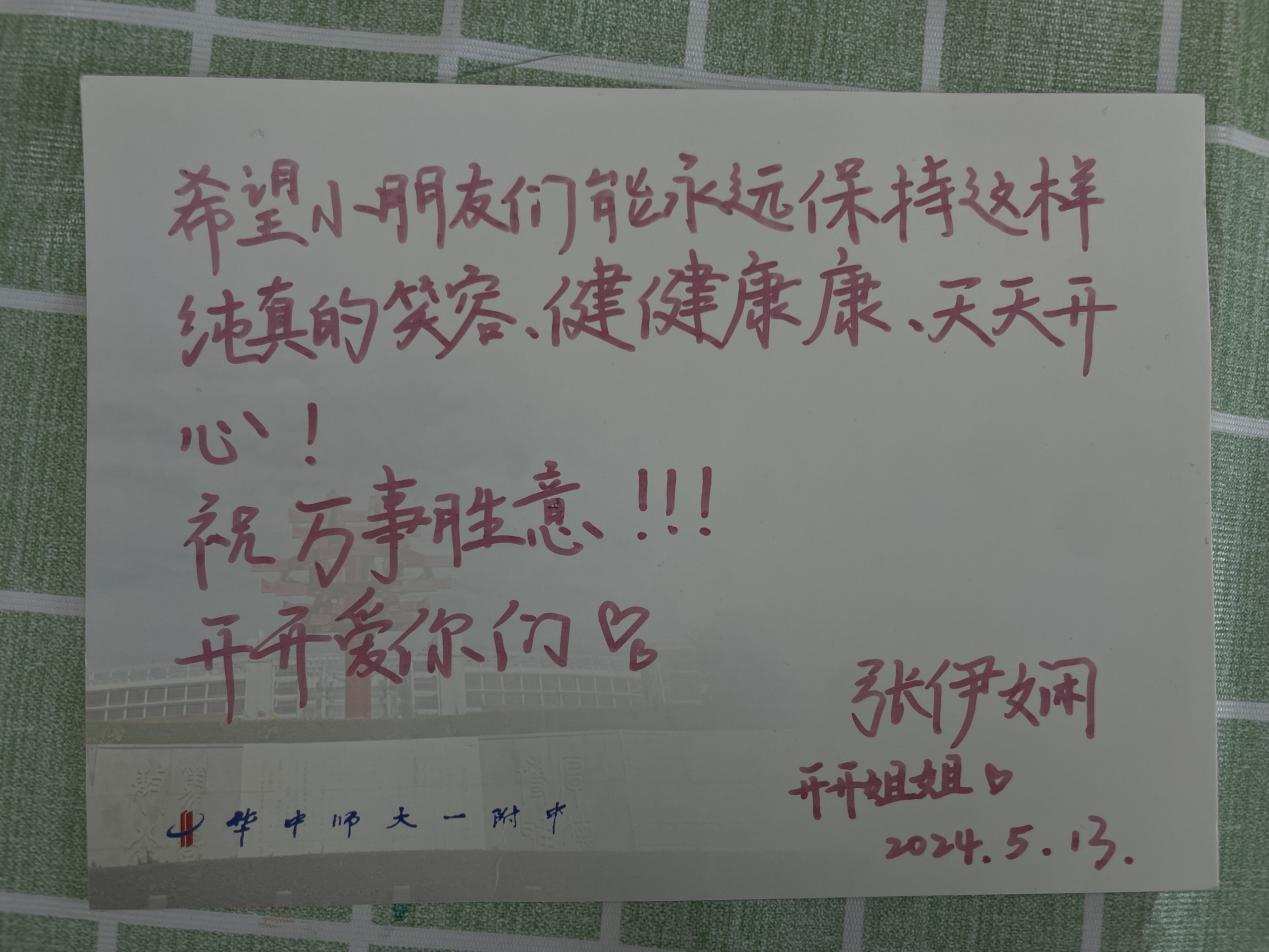 希望小朋友们能永远保持这样
纯真的笑容、健健康康、天天开
心！
祝万事胜意！！！
开开爱你们♡
张伊娴
开开姐姐♡
2024.5.13.
华中师大一附中